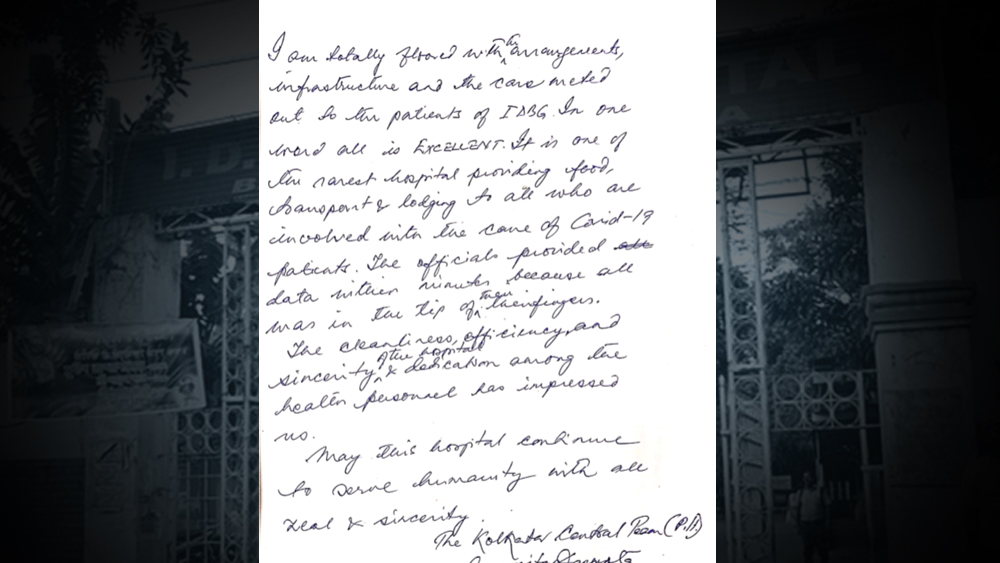 I am totally flored with the arrangements,
infrastructure and the care meted
out to the patients of IDBG. In one
word all is EXCELLENT. It is one of
the rarest hospital providing food,
transport & lodging to all who are
involved with the care of Covid-19
patients. The officials provided all
data within minutes because all
was in the tip of their fingers.
The cleanliness, efficiency, and
sincerity of the hospital & dedication among the
health personnel has impressed
us.
May this hospital continue
to serve humanity with all
zeal & sincerity.
The Kolkata Central Team (P.H)